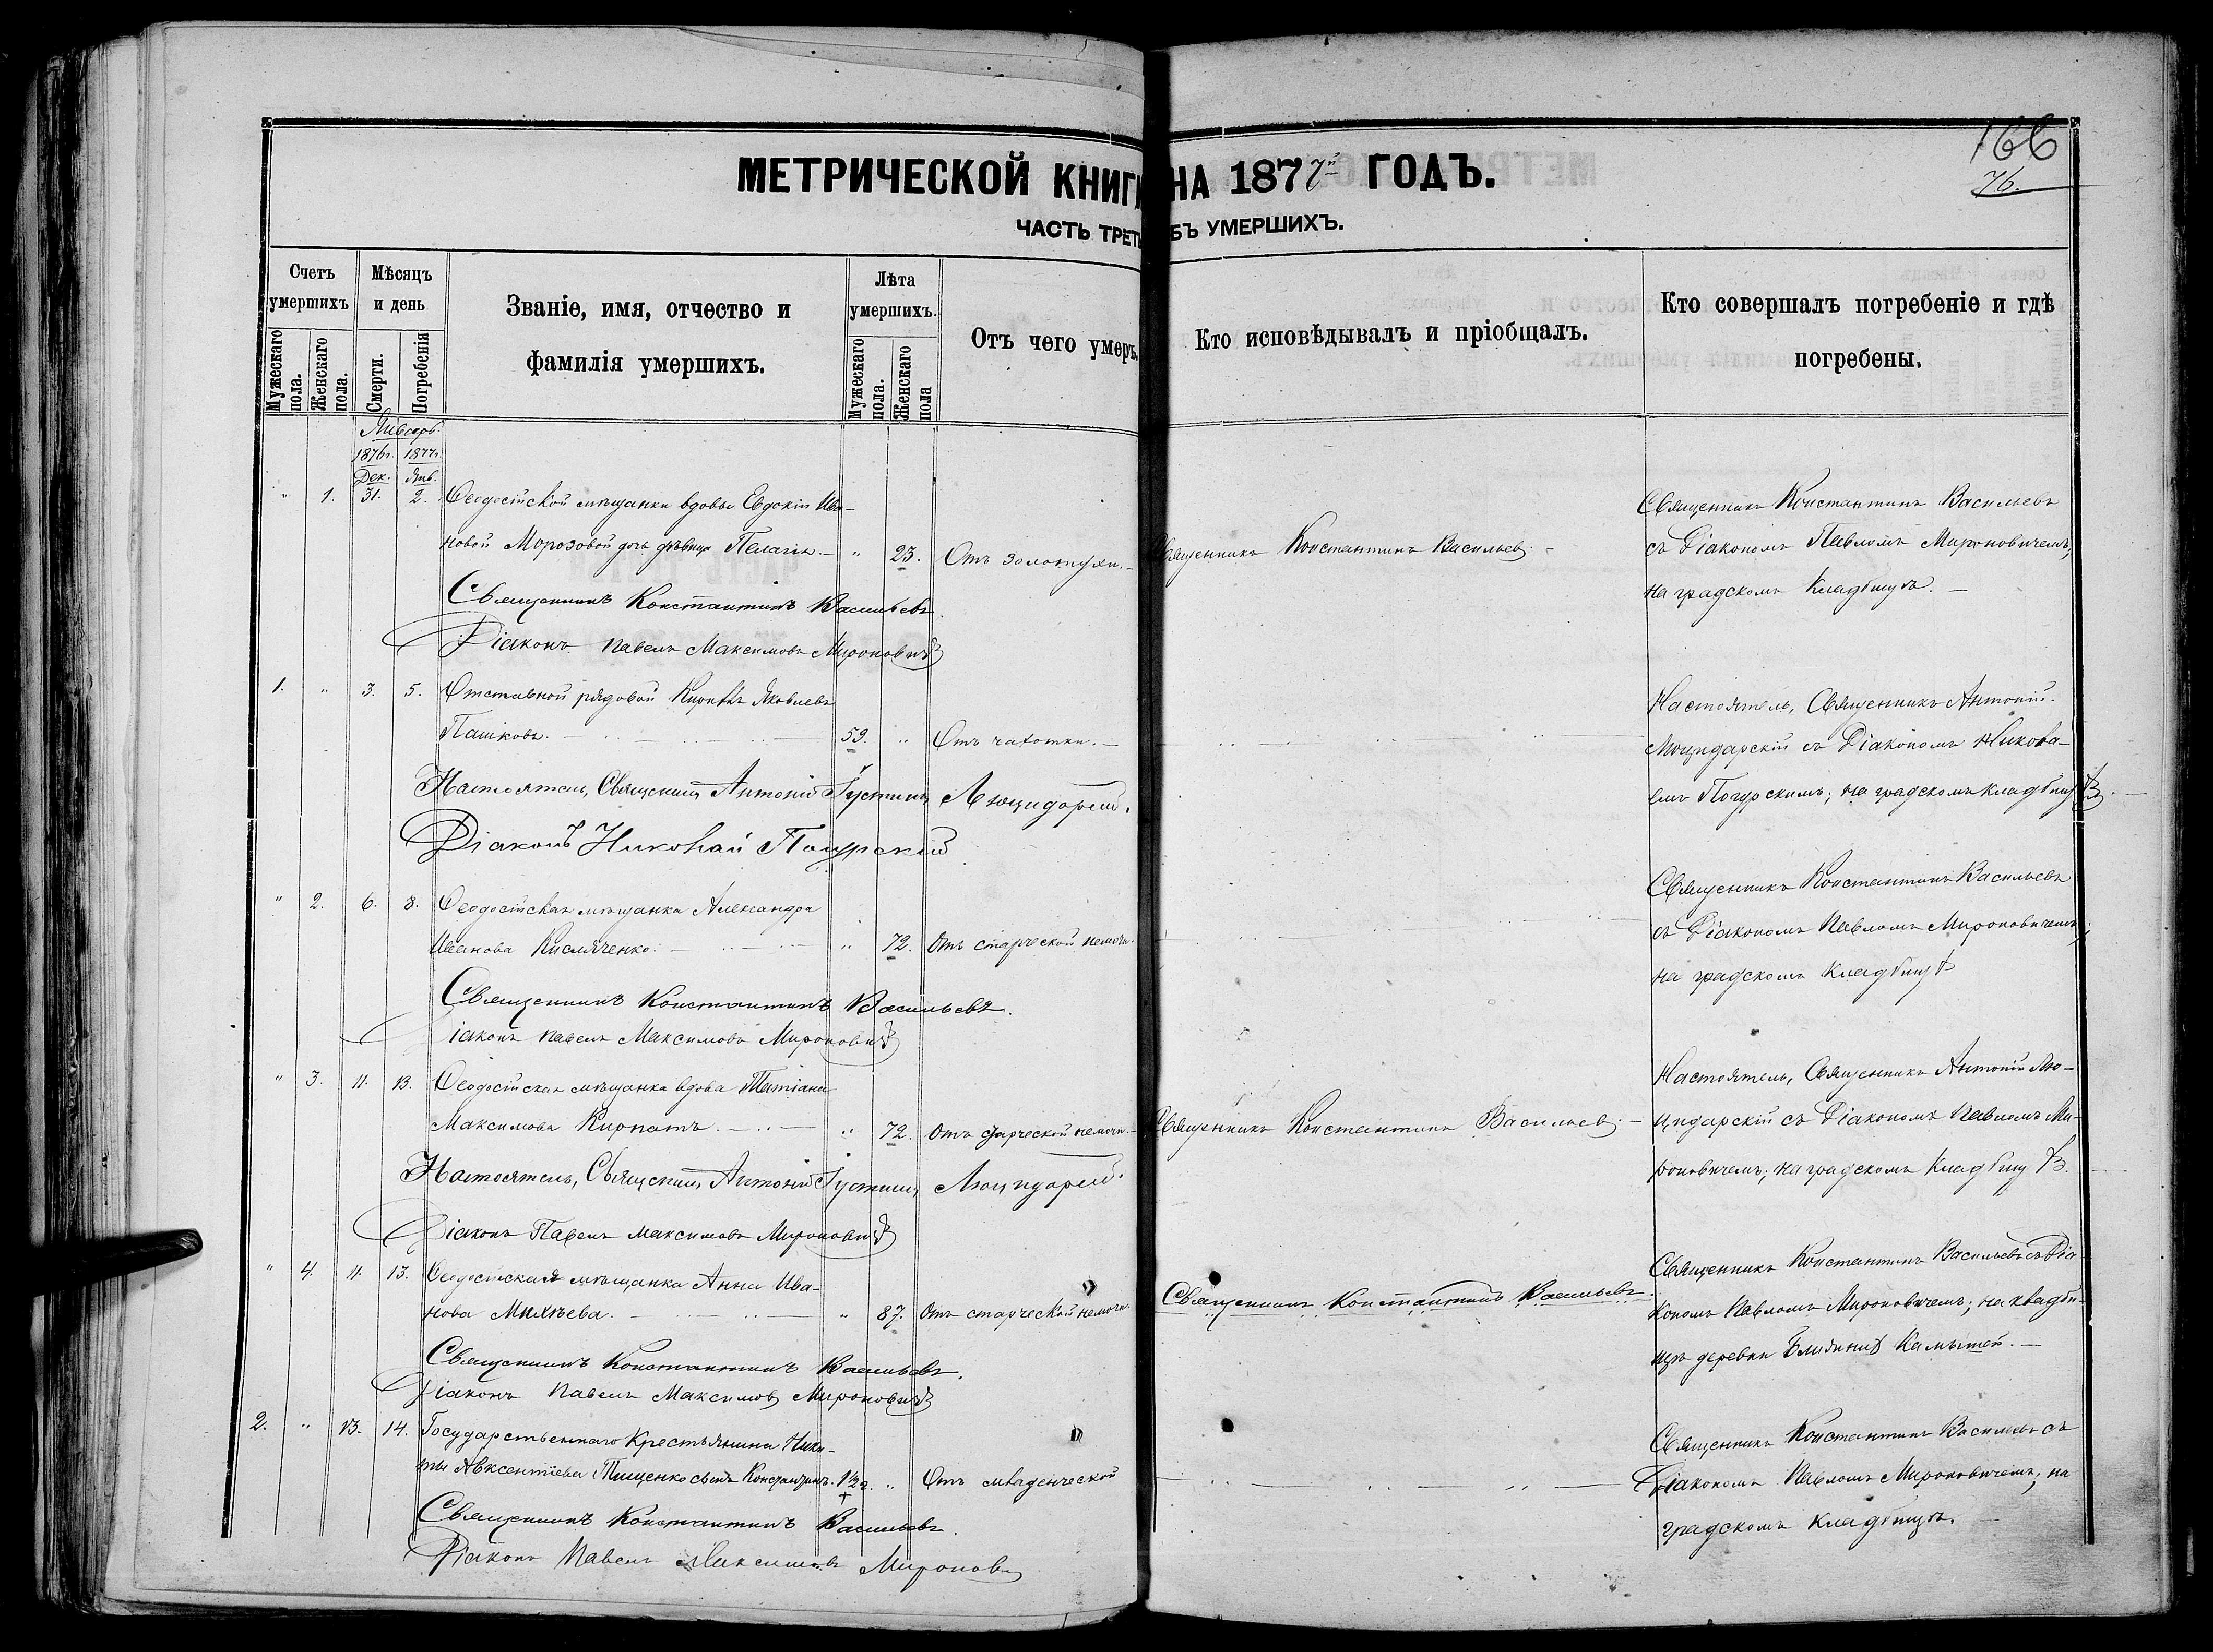 166
76.
МЕТРИЧЕСКОЙ КНИГИ НА 1877й ГОДЪ.
ЧАСТЬ ТРЕТЬ БЪ УМЕРШИХЪ.
Счетъ умершихъ
Мужескаго пола.
Женскаго пола.
Мѣсяцъ и день
Смерти.
Погребенія
Званіе, имя, отчество и
фамилія умершихъ.
Лѣта умершихъ.
Мужескаго пола.
Женскаго пола
Отъ чего умеръ.
Кто исповѣдывалъ и пріобщалъ.
Кто совершалъ погребеніе и гдѣ
погребены.
Январь.
1876г. 1877г.
Дек. Янв.
" 1. 31. 2. Ѳеодосійской мѣщанки вдовы Евдокіи Ива-
новой Морозовой дочь дѣвица Пелагія. " 23. Отъ золотухи.
Священникъ Константинъ Васильевъ.
Священникъ Константинъ Васильевъ
съ Діакономъ Павломъ Мироновичемъ,
на градскомъ кладбищѣ.
Священникъ Константинъ Васильевъ.
Діаконъ Павелъ Максимовъ Мироновичъ
1. " 3. 5. Отставной рядовой Яковлевъ
Пашковъ. 59. " Отъ чахотки.
Настоятель, Священникъ Антоній
съ Діакономъ Никола-
емъ; на градскомъ кладбищѣ.
Настоятель, Священникъ Антоній Іустинъ
Діаконъ Николай
" 2. 6. 8. Ѳеодосійская мѣщанка Александра
Иванова Кисляченко. " 72. Отъ старческой немочи.
Священникъ Константинъ Васильевъ
съ Діакономъ Павломъ Мироновичемъ;
на градскомъ кладбищѣ
Священникъ Константинъ Васильевъ.
Діаконъ Павелъ Максимовъ Мироновичъ
" 3. 11. 13. Ѳеодосійская мѣщанка вдова Татіана
Максимова Кирпатъ. " 72. Отъ старческой немочи.
Священникъ Константинъ Васильевъ.
Настоятель, Священникъ Антоній Лю-
цидарскій съ Діакономъ Павломъ Ми-
роновичемъ; на градскомъ кладбищѣ.
Настоятель, Священникъ Антоній Іустинъ
Діаконъ Павелъ Максимовъ Мироновичъ
" 4. 11. 13. Ѳеодосійская мѣщанка Анна Ива-
нова Михѣева. " 87. Отъ старческой немочи.
Священникъ Константинъ Васильевъ.
Священникъ Константинъ Васильевъ съ Діа-
кономъ Павломъ Мироновичемъ; на кладби-
щѣ деревни Ближнія Камыши.
Священникъ Константинъ Васильевъ.
Діаконъ Павелъ Максимовъ Мироновичъ
2. " 13. 14. Государственнаго Крестьянина Ники-
ты Авксентіева Тищенко сынъ Константинъ. " Отъ младенческой
Священникъ Константинъ Васильевъ съ
Діакономъ Павломъ Мироновичемъ; на
градскомъ кладбищѣ.
Священникъ Константинъ Васильевъ.
Діаконъ Павелъ Максимовъ